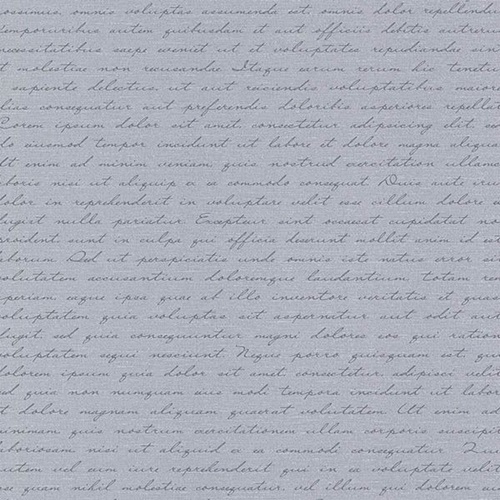 ossimus, omnis voluptas assumenda est, omnis dolor repellendu
temporuribus autem quibusdam et aut officiis debitis autreru
necessitatibus saepe eveniet ut et voluptates repudiandae sin
t molestiae non recusandae Itaque earum rerum hic tenetu
sapiente delectus, ut aut reiciendis voluptatibus maiore
lias consequatur aut preferendis doloribus asperiores repellat
Lorem ipsum dolor sit amet, consectetur adipisicing elit, se
do eiusmod tempor incididunt ut labore et dolore magna aliqua
Ut enim ad minim veniam quis nostrud exercitation ullamc
aboris nisi ut aliquip ex ea commodo consequat Duis aute iru
dolor in reprehenderit in voluptate velit esse cillum dolore e
fugiat nulla pariatur Excepteur sint occaecat cupidatat no
proident, sunt in culpa qui officia deserunt mollit anim id es
laborum Sed ut perspiciatis unde omnis iste natus error sit
voluptatem accusantium doloremque laudantium, totam rem
aperiam eaque ipsa quae ab illo inventore veritatis et quas
voluptatem quia voluptas sit aspernatur aut odit aut
fugit, sed quia consequuntur magni dolores eos qui ration
voluptatem sequi nesciunt Neque porro quisquam est, qui
dolorem ipsum quia dolor sit amet, consectetur, adipisci velit
sed quia non numquam eius modi tempora incidunt ut labor
t dolore magnam aliquam quaerat voluptatem Ut enim ad
minimam quis nostrum exercitationem ullam corporis suscipit
laboriosam, nisi ut aliquid ex ea commodi consequatur Quis
autem vel eum iure reprehenderit qui in ea voluptate velit
quam nihil molestiae consequatur, vel illum qui dolorem eu